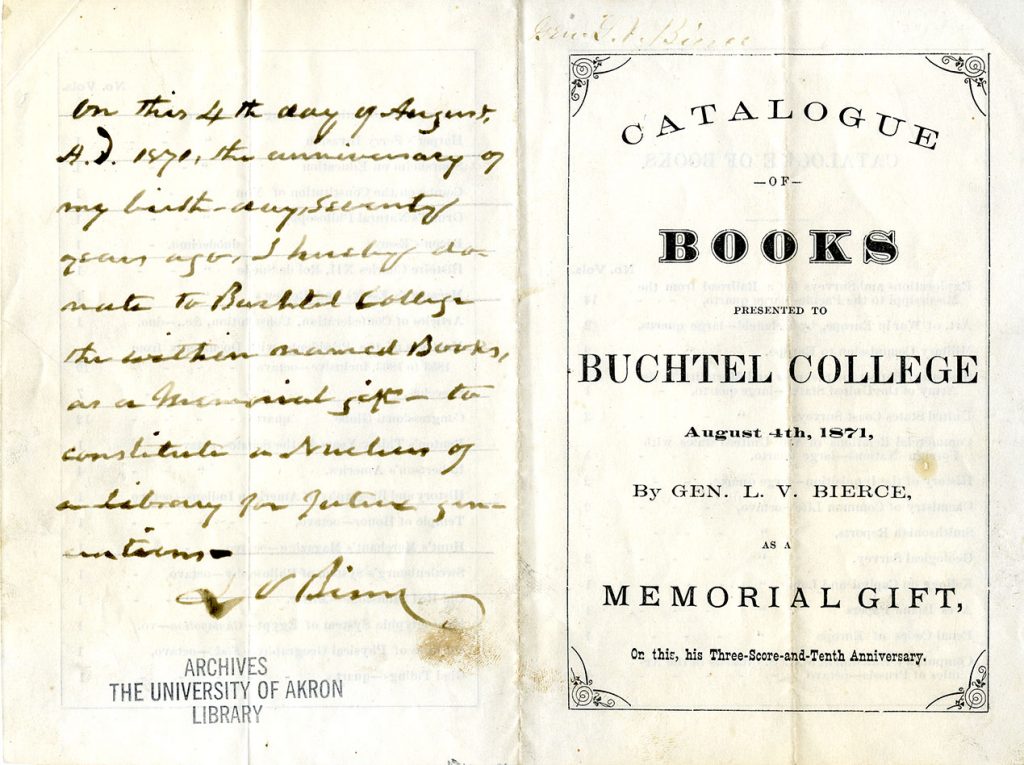 On this 4th day of August,
A.D. 1871, the anniversary of
my birth-day, Seventy
years ago, I hereby do-
nate to Buchtel College
the within named Books,
as a Memorial gift - to
constitute a Nucleus of
a Library for future gen-
erations-
L V Bierce
ARCHIVES
THE UNIVERSITY OF AKRON
LIBRARY
Gen. L. V. Bierce
CATALOGUE
-OF-
BOOKS
PRESENTED TO
BUCHTEL COLLEGE
August 4th, 1871,
By GEN. L. V. BIERCE,
AS A
MEMORIAL GIFT,
On this, his Three-Score-and-Tenth Anniversary.